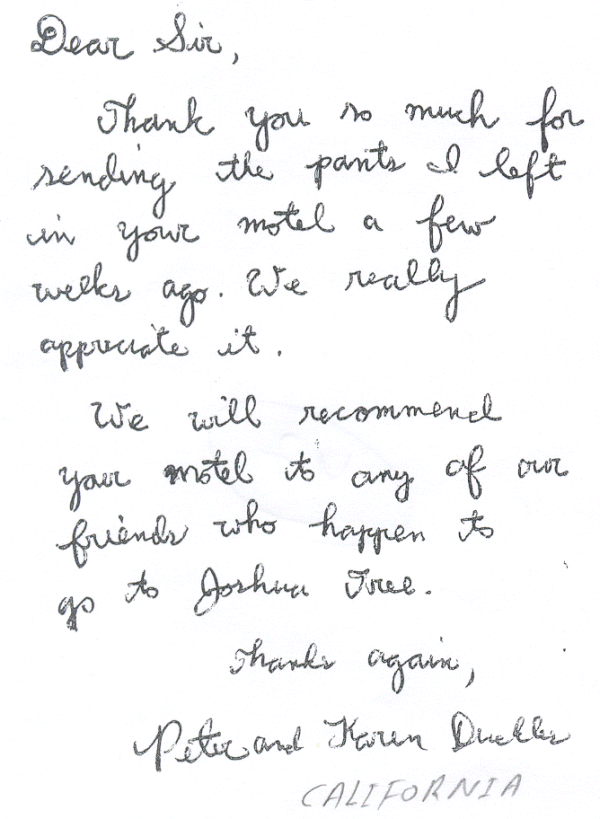 Dear Sir,
Thank you so much for
sending the pants I left
in your motel a few
weeks ago. We really
appreciate it.
We will recommend
your motel to any of our
friends who happen to
go to Joshua Tree.
Thanks again,
Peter and Karen
CALIFORNIA